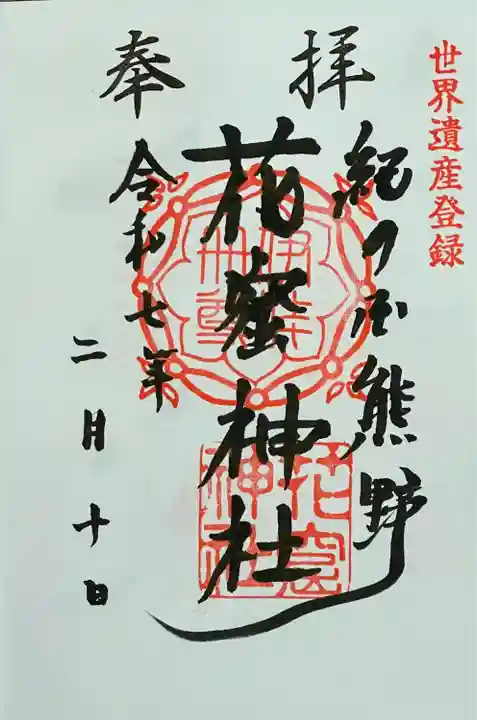 世界遺産登録
奉拝
紀の国熊野
花窟神社
伊弉
冊尊
花窟
神社
令和七年
二月十日